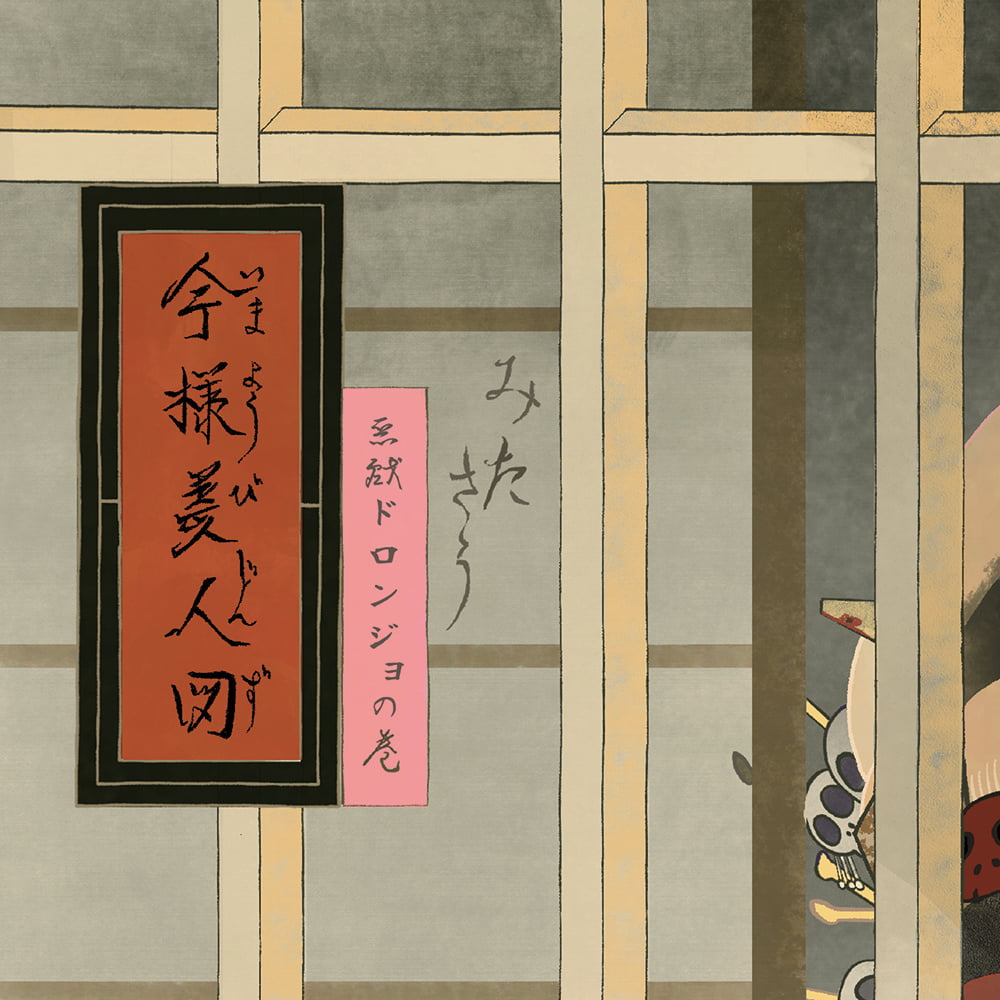 今様美人図
いまようびじんず
悪戯ドロンジョの巻
みた
さう